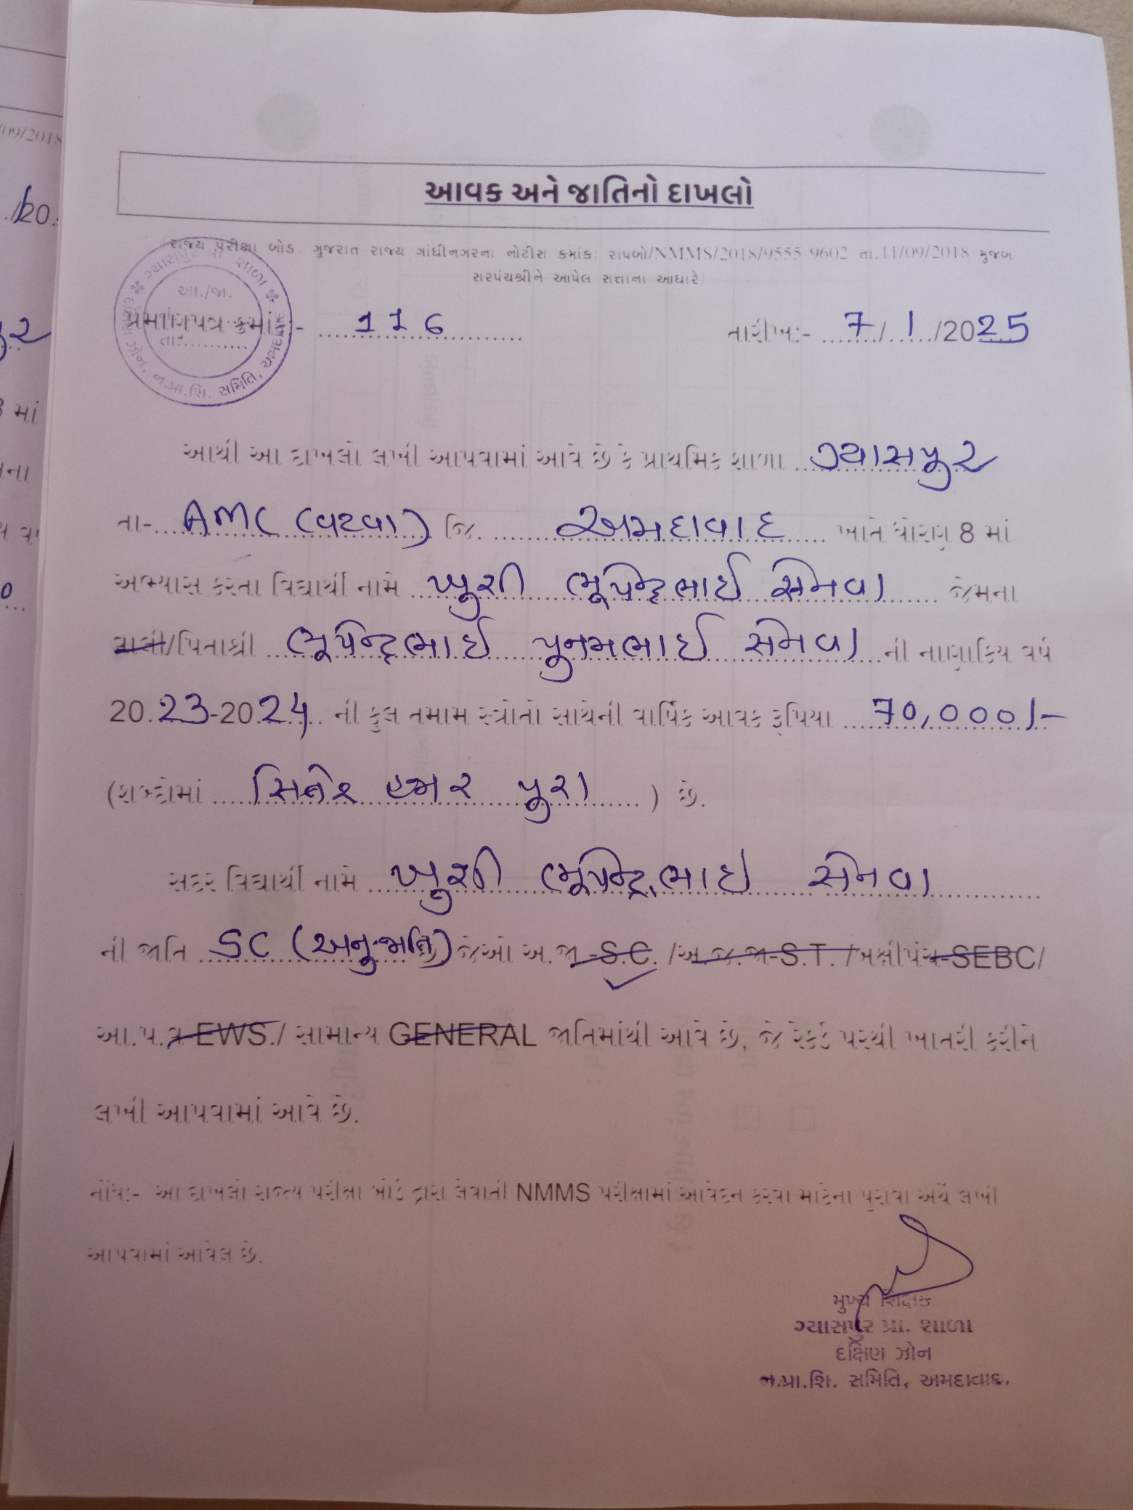 આવક અને જાતિનો દાખલો
રાજ્ય પરીક્ષા બોર્ડ, ગુજરાત રાજ્ય ગાંધીનગરના નોટીસ ક્રમાંક: રાપબો/NMMS/2018/9555-9602 તા.11/09/2018 મુજબ
સરપંચશ્રીને આપેલ સત્તાના આધારે
ગ્યાસપુર શાળા
આ./જા.
તા:..........
ન.પ્રા.શિ. સમિતિ, અમદાવાદ
પ્રમાણપત્ર ક્રમાંક:- 116 તારીખ:- 7/1/2025
આથી આ દાખલો લખી આપવામાં આવે છે કે પ્રાથમિક શાળા ગ્યાસપુર
તા- AMC (વટવા) જિ. અમદાવાદ ખાતે ધોરણ 8 માં
અભ્યાસ કરતા વિદ્યાર્થી નામે ખુશી ભૂપેન્દ્રભાઈ સેનવા જેમના
માતા/પિતાશ્રી ભૂપેન્દ્રભાઈ પુનમભાઈ સેનવા ની નાણાકિય વર્ષ
2023-2024 ની કુલ તમામ સ્ત્રોતો સાથેની વાર્ષિક આવક રૂપિયા 70,000/-
(શબ્દોમાં સિત્તેર હજાર પુરા ) છે.
સદર વિદ્યાર્થી નામે ખુશી ભૂપેન્દ્રભાઈ સેનવા
ની જાતિ SC (અનુ.જાતિ) જેઓ અ.જા-S.C. /અ.જ.જા-S.T. /બક્ષીપંચ-SEBC/
આ.પ.વ-EWS./ સામાન્ય GENERAL જાતિમાંથી આવે છે, જે રેકર્ડ પરથી ખાતરી કરીને
લખી આપવામાં આવે છે.
નોંધ:- આ દાખલો રાજ્ય પરીક્ષા બોર્ડ દ્વારા લેવાતી NMMS પરીક્ષામાં આવેદન કરવા માટેના પુરાવા અર્થે લખી
આપવામાં આવેલ છે.
મુખ્ય શિક્ષક
ગ્યાસપુર પ્રા. શાળા
દક્ષિણ ઝોન
ન.પ્રા.શિ. સમિતિ, અમદાવાદ.